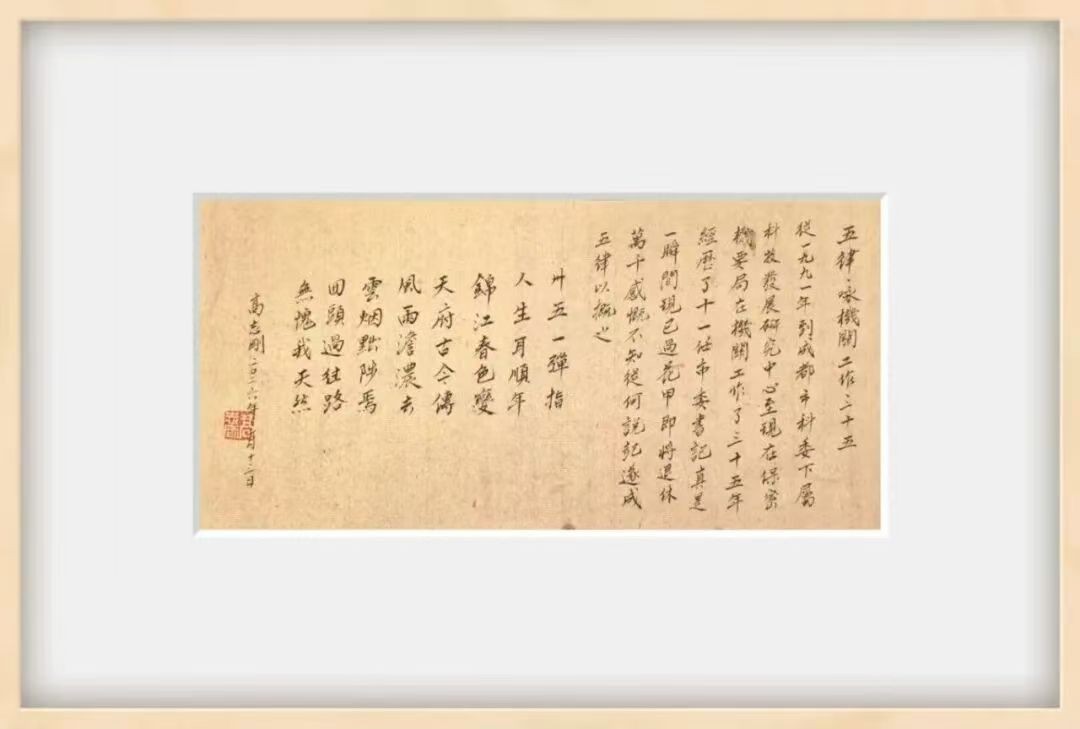 五律·咏機關工作三十五
從一九九一年到成都市科委下屬
科技發展研究中心至現在保密
機要局在機關工作了三十五年
經歷了十一任市委書記真是
一瞬間現已過花甲即將退休
萬千感慨不知從何說起遂成
五律以概之
卅五一彈指
人生耳順年
錦江春色變
天府古今傳
風雨澹濃去
雲烟黜陟焉
回頭過往路
無愧我天然
高志剛二〇二六年月十二日